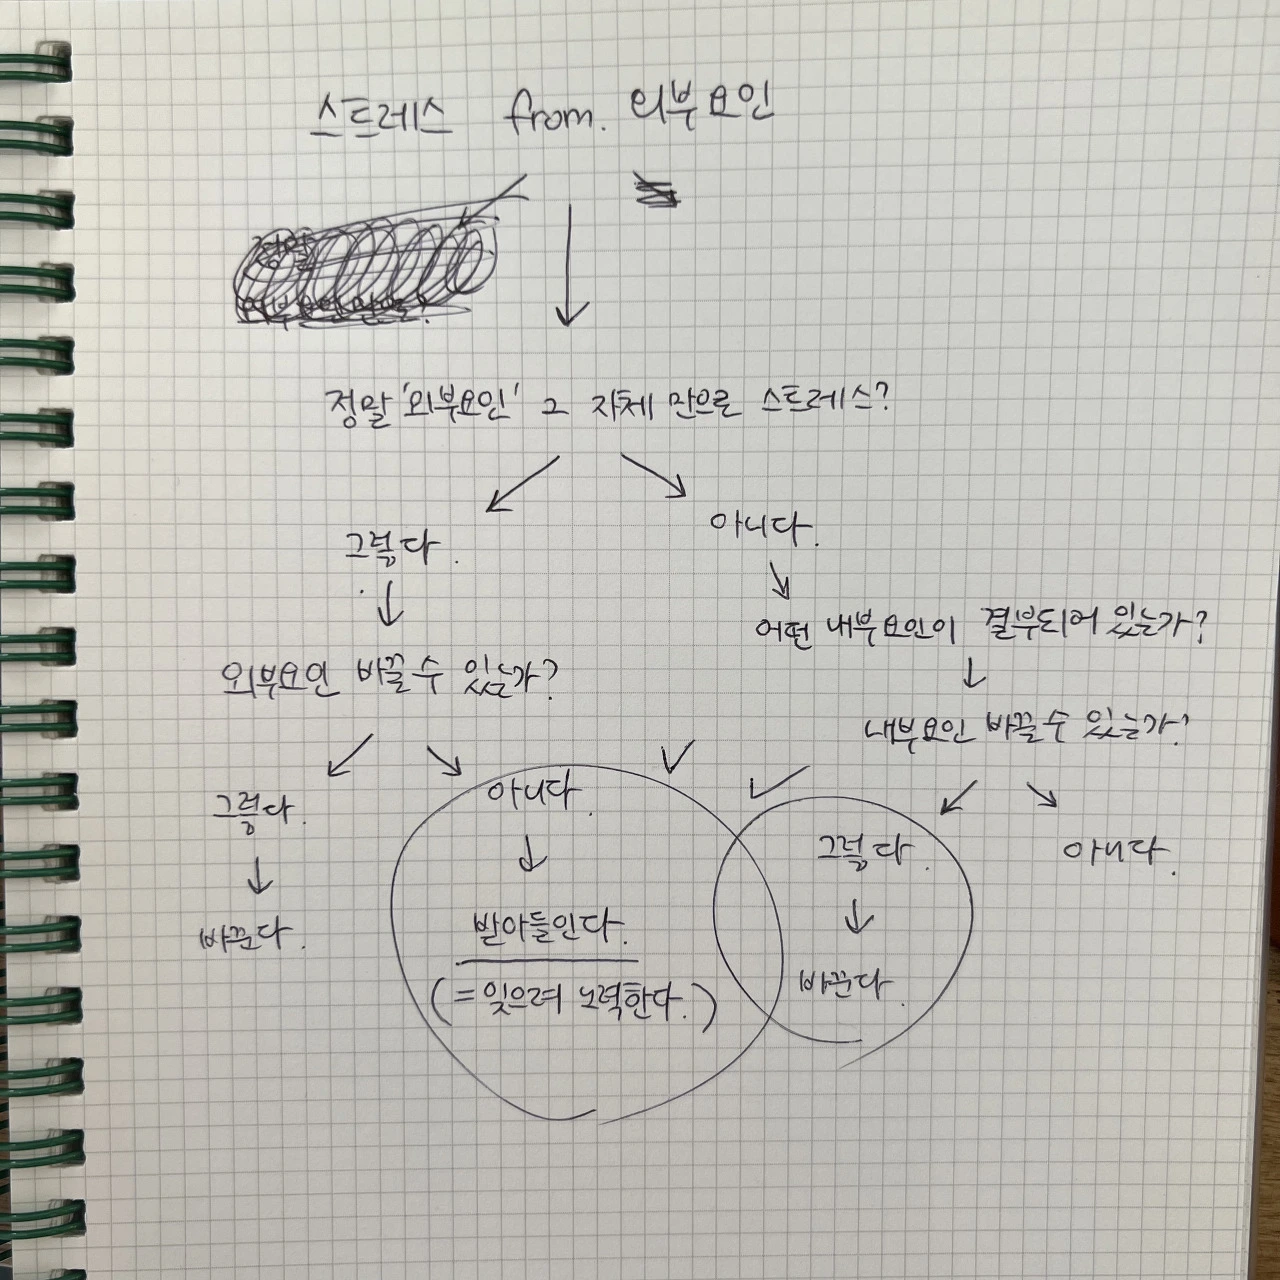 스트레스 from. 외부요인
정말 '외부요인' 그 자체 만으로 스트레스?
그렇다.
아니다.
어떤 내부요인이 결부되어 있는가?
외부요인 바꿀 수 있는가?
내부요인 바꿀 수 있는가?
그렇다.
아니다.
그렇다.
아니다.
바꾼다.
받아들인다.
(= 잊으려 노력한다.)
바꾼다.